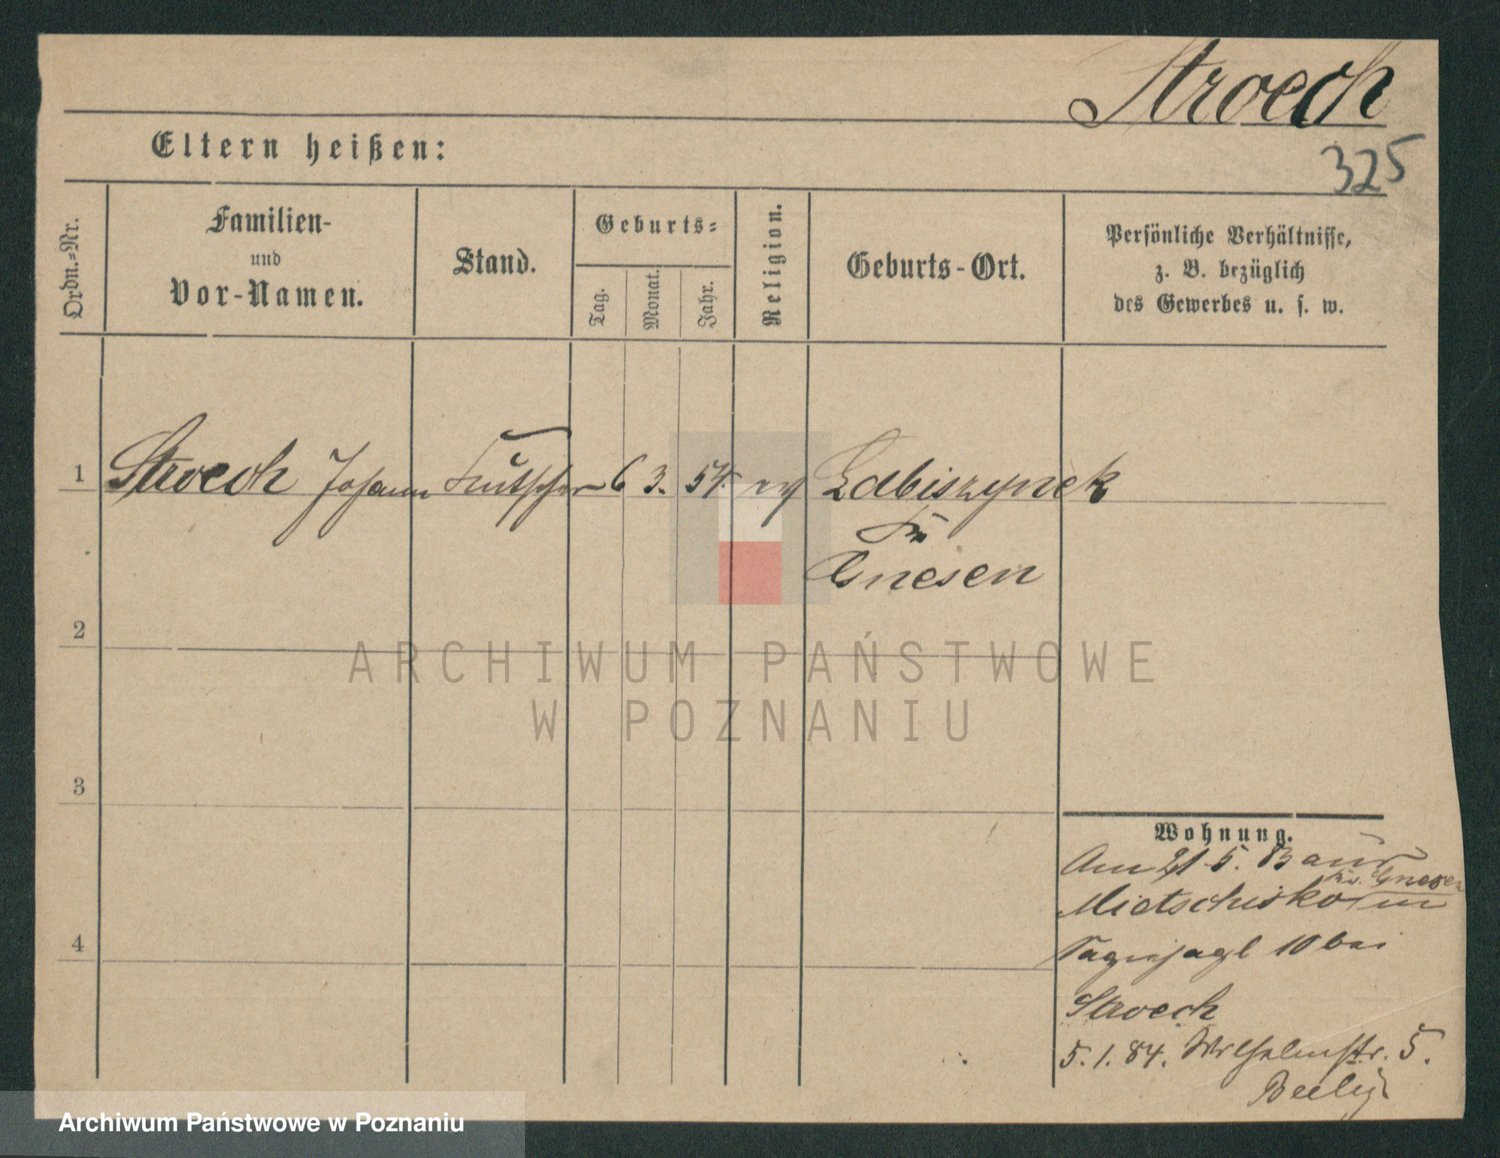 Stroech
325
Eltern heißen:
Ordn.=Nr.
Familien-
und
Vor-Namen.
Stand.
Geburts=
Tag.
Monat.
Jahr.
Religion.
Geburts-Ort.
Persönliche Verhältnisse,
z. B. bezüglich
des Gewerbes u. s. w.
1 Stroech Johann 6 3. 54.
Gnesen
2
3
4
Wohnung.
Am 21. 5. 83 aus
Gnesen
Mietschisko in
10 bei
Stroech
5. 1. 84. Wilhelmstr. 5.
Beely
ARCHIWUM PAŃSTWOWE
W POZNANIU
Archiwum Państwowe w Poznaniu